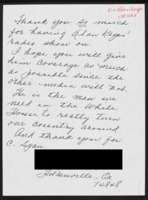 Thank you so much
for having Alan Keyes'
radio show on.
I hope you will give
him coverage as much
as possible since the
other media will not.
He is the man we
need in the White
House to really turn
our country around
And thank you for
C-Span
74848